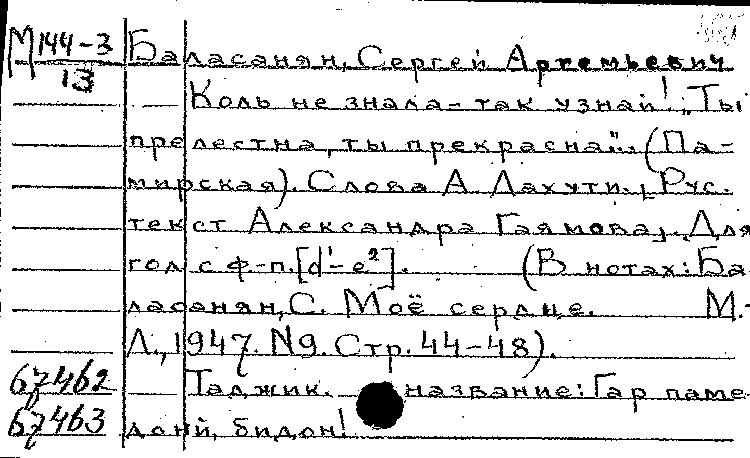 М 144-3 Баласанян, Сергей Артемьевич
13
Коль не знала - так узнай! „Ты
прелестна, ты прекрасна". (Па-
мирская). Слова А. Лахути., Рус.
текст Александра Гаямова,. Для
гол с ф-п. [d¹-e²]. (В нотах: Ба
ласанян, С. Моё сердце. М.-
Л., 1947. N9. Стр. 44-48).
67462 Таджик. название: Гар наме
67463 донй, бидон!